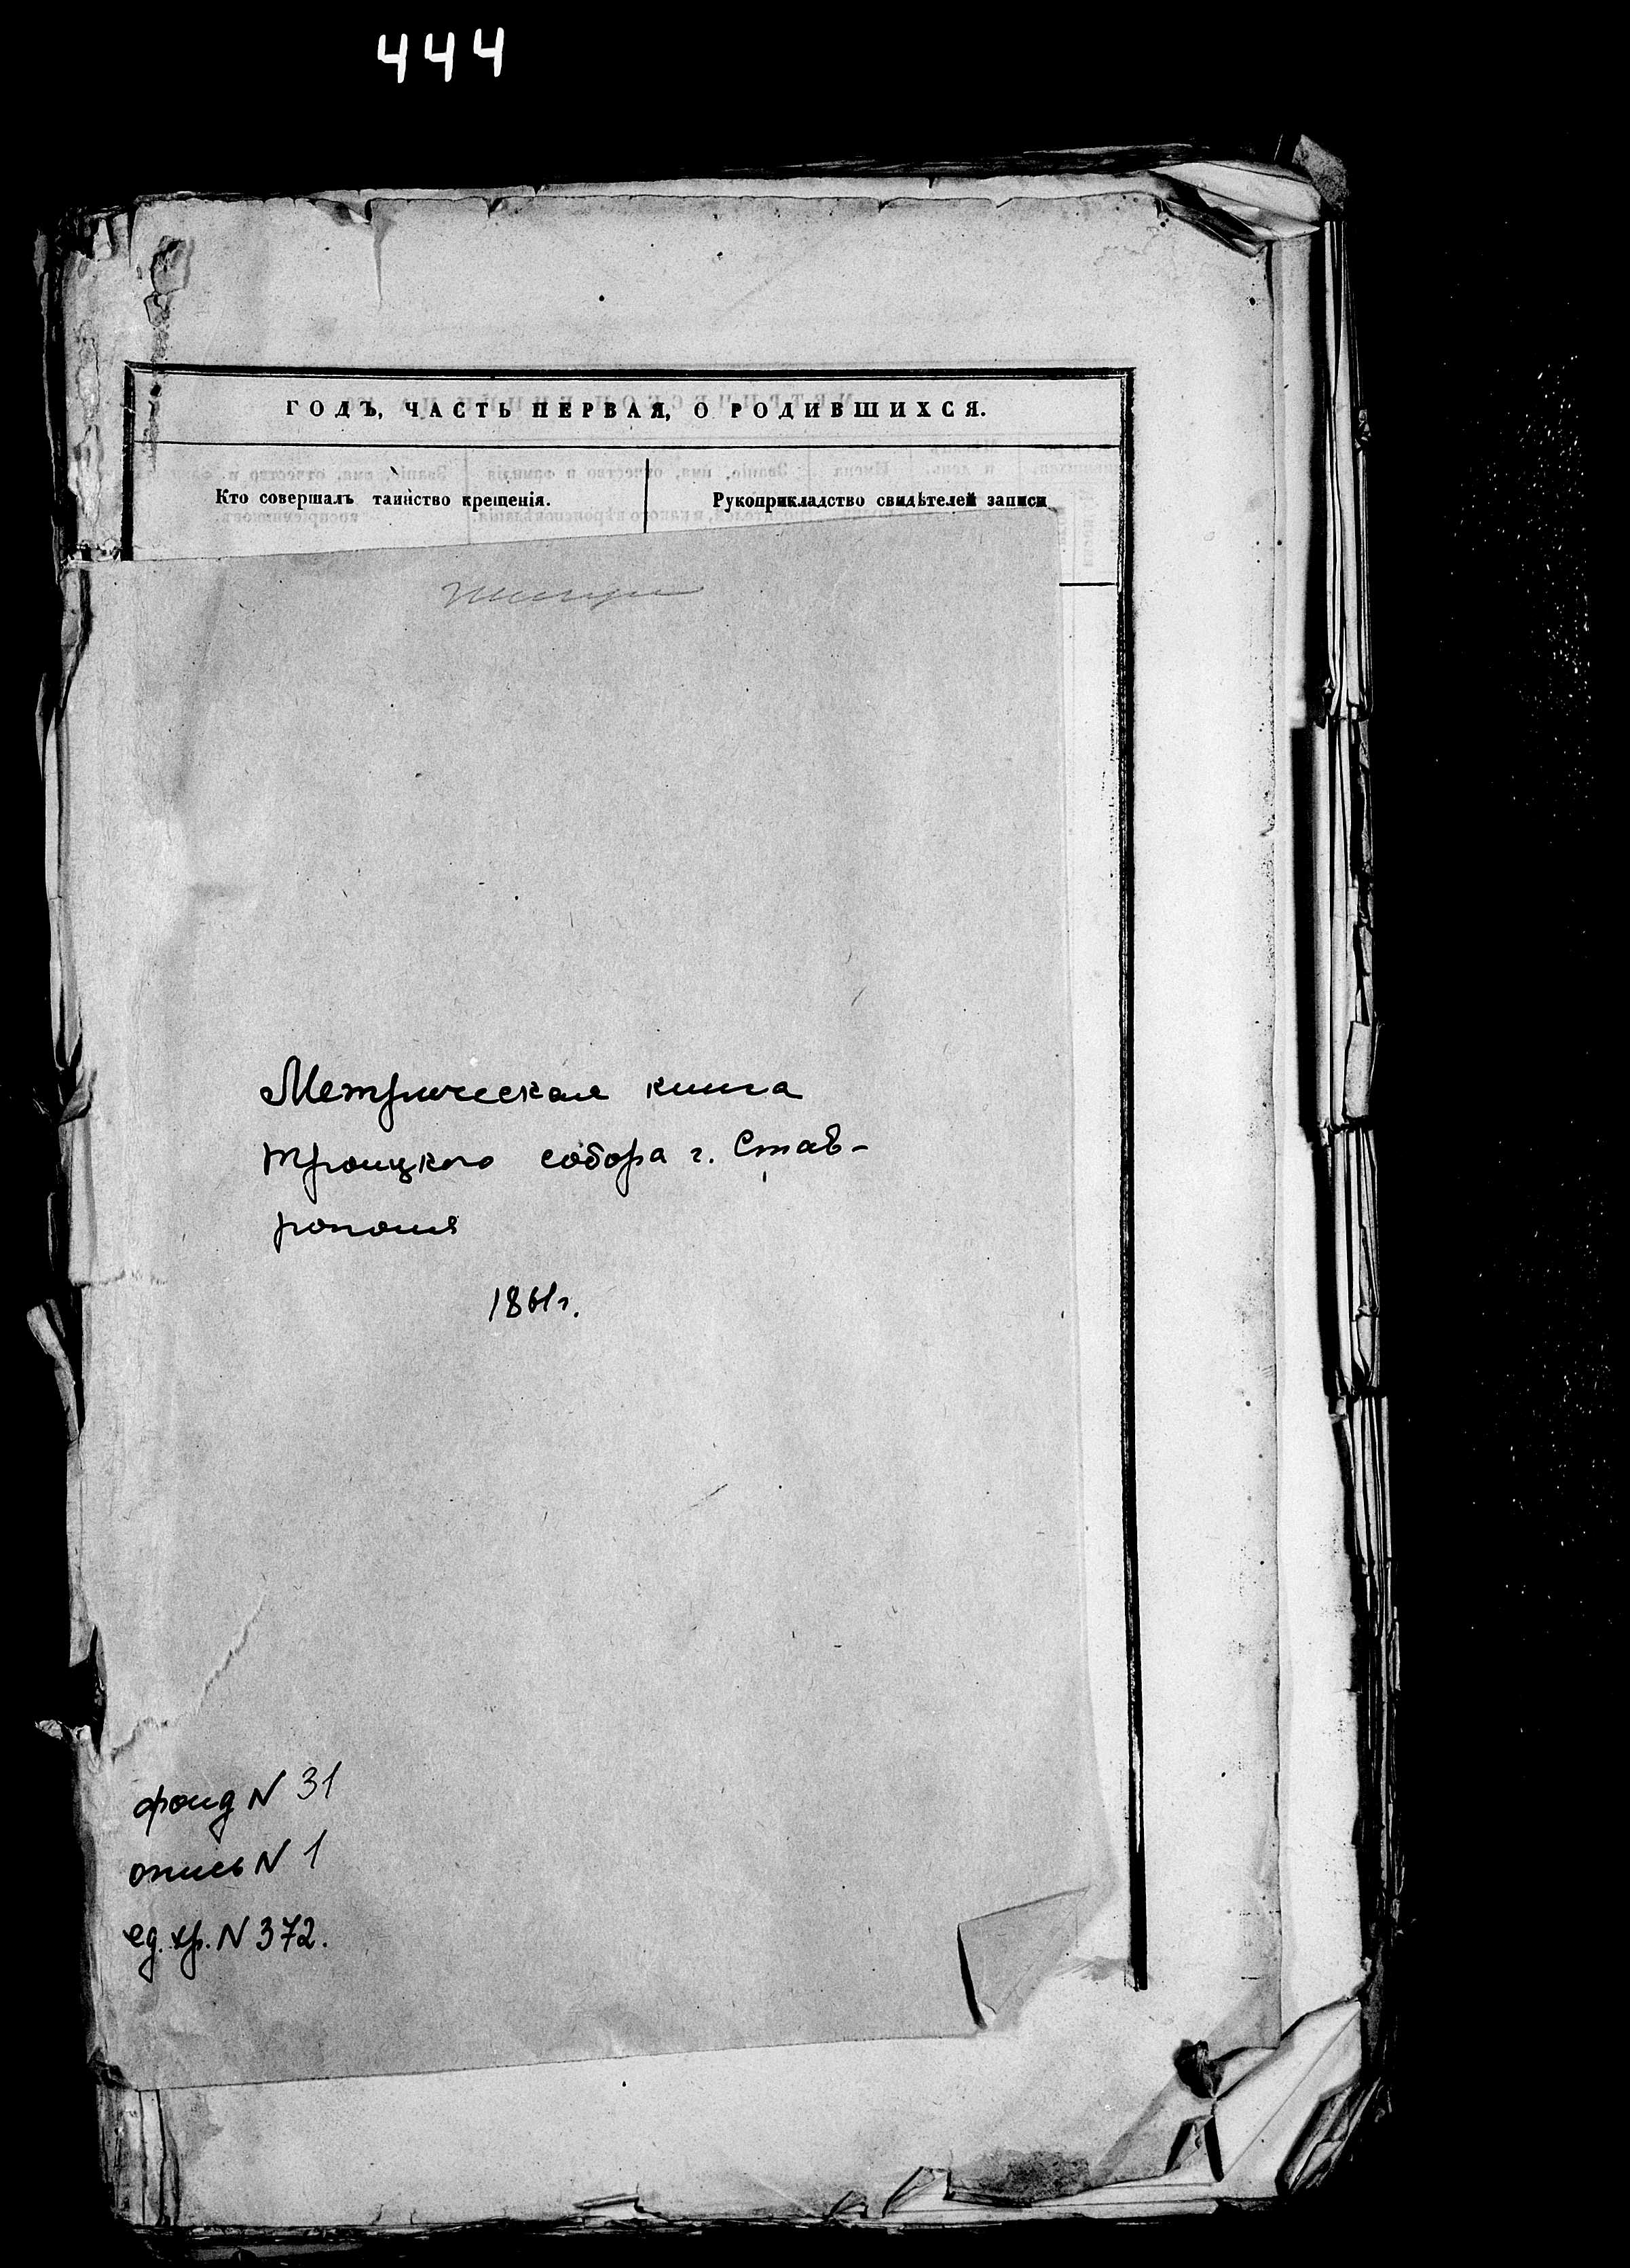 444
ГОДЪ, ЧАСТЬ ПЕРВАЯ, О РОДИВШИХСЯ.
Кто совершалъ таинство крещенія.
Рукоприкладство свидѣтелей записи
Метрическая книга
Троицкого собора г. Став-
рополя
1861г.
фонд N 31
опись N 1
ед. хр. N 372.